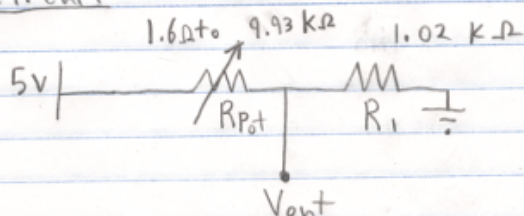 1.6Ω to 9.93 KΩ
1.02 KΩ
5V
RPot
R1
Vout